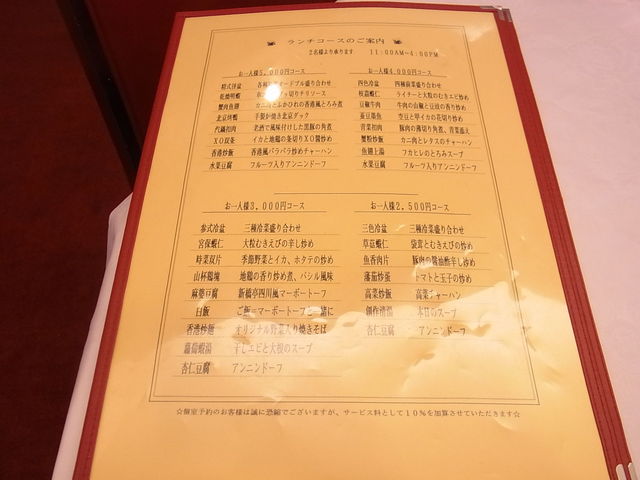 ランチコースのご案内
2名様より承ります 11:00AM~4:00PM
お一人様5,000円コース
精式冷盆 各種オードブル盛り合わせ
乾焼明蝦 チリソース
蟹肉魚翅 カニ肉とふかひれの香港風とろみ煮
北京烤鴨 手製かま焼き北京ダック
代鍋扣肉 老酒で風味付けした黒豚の角煮
XO双条 イカと地鶏の条切りXO醤炒め
香港炒飯 香港風パラパラ炒めチャーハン
水菓豆腐 フルーツ入りアンニンドーフ
お一人様4,000円コース
四色冷盆 四種前菜盛り合わせ
桂茘蝦仁 ライチーと大粒のむきエビ炒め
豆鼓牛肉 牛肉の山椒と豆鼓の香り炒め
蚕豆墨魚 空豆と甲イカの花切り炒め
青菜扣肉 豚肉の薄切り角煮、青菜添え
蟹粉炒飯 カニ肉とレタスのチャーハン
魚翅上湯 フカヒレのとろみスープ
水菓豆腐 フルーツ入りアンニンドーフ
お一人様3,000円コース
参式冷盆 三種冷菜盛り合わせ
宮保蝦仁 大粒むきえびの辛し炒め
時菜双片 季節野菜とイカ、ホタテの炒め
山杯鶏塊 地鶏の香り炒め煮、バシル風味
麻婆豆腐 新橋亭四川風マーボートーフ
白飯 ご飯=マーボートーフと一緒に
香港炒麺 オリジナル野菜入り焼きそば
蘿蔔蝦湯 干しエビと大根のスープ
杏仁豆腐 アンニンドーフ
お一人様2,500円コース
三色冷盆 三種冷菜盛り合わせ
草菇蝦仁 袋茸とむきえびの炒め
魚香肉片 豚肉の醤油酢辛し炒め
蕃茄炒蛋 トマトと玉子の炒め
高菜炒飯 高菜チャーハン
創作清湯 本日のスープ
杏仁豆腐 アンニンドーフ
☆個室予約のお客様は誠に恐縮でございますが、サービス料として10%を加算させていただきます☆